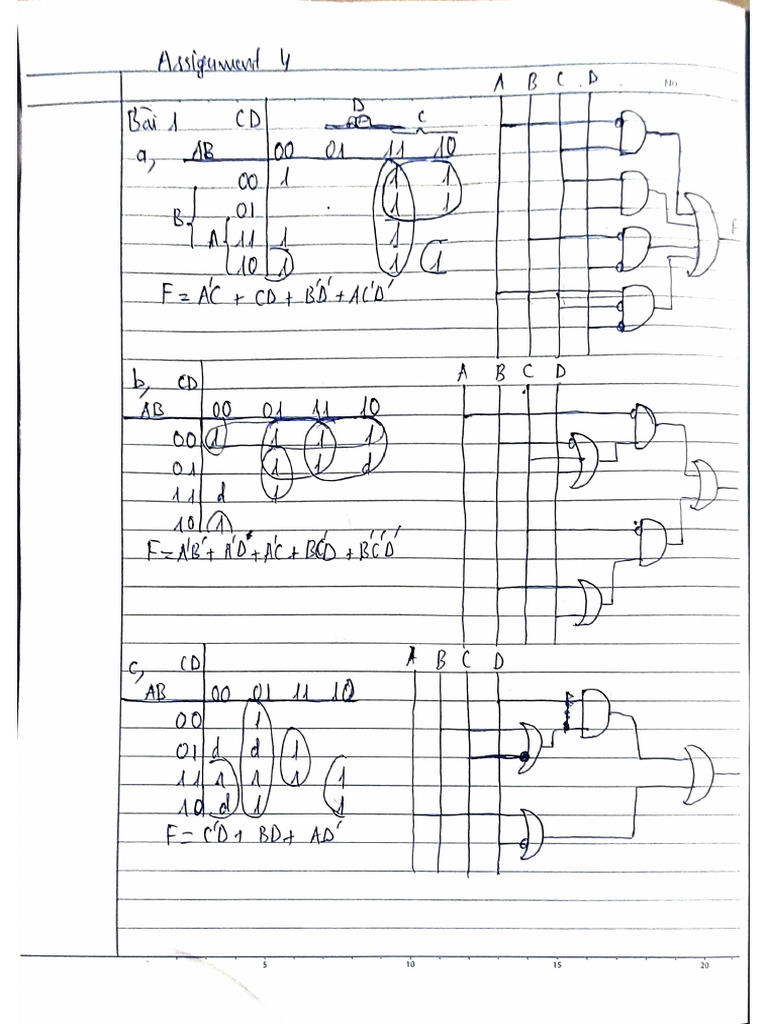 Assignment 4
A B C D
No
Bài 1 CD
D
C
a, AB 00 01 11 10
00 1 1 1
B 01 1 1
A 11 1 1
10 1 1 1
F
F = A'C + CD + B'D' + AC'D'
b, CD
A B C D
AB 00 01 11 10
00 1 1 1 1
01 1 1 d
11 d 1
10 1
F = A'B' + A'D + A'C + BC'D + B'C'D'
c, CD
A B C D
AB 00 01 11 10
00 1
01 d d 1
11 1 1 1 1
10 d 1 1
F = C'D + BD + AD'
5 10 15 20